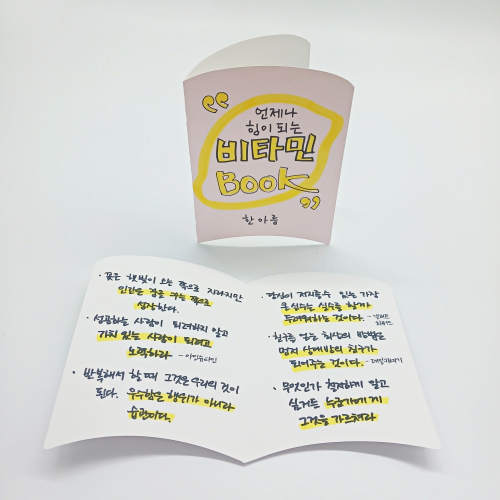 언제나
힘이 되는
비타민
BOOK
한아름
· 꽃은 햇빛이 오는 쪽으로 자라지만
인간은 꿈을 꾸는 쪽으로
성장한다.
· 성공하는 사람이 되려하지 말고
가치 있는 사람이 되려고
노력하라 - 아인슈타인
· 반복해서 할 때 그것은 우리의 것이
된다. 우수함은 행위가 아니라
습관이다.
· 당신이 저지를 수 있는 가장
큰 실수는 실수를 할까
두려워하는 것이다. - 앨버트
· 친구를 얻는 최상의 방법은
먼저 상대방의 친구가
되어주는 것이다. - 데일카네기
· 무엇인가 철저하게 알고
싶거든 누군가에게
그것을 가르쳐라